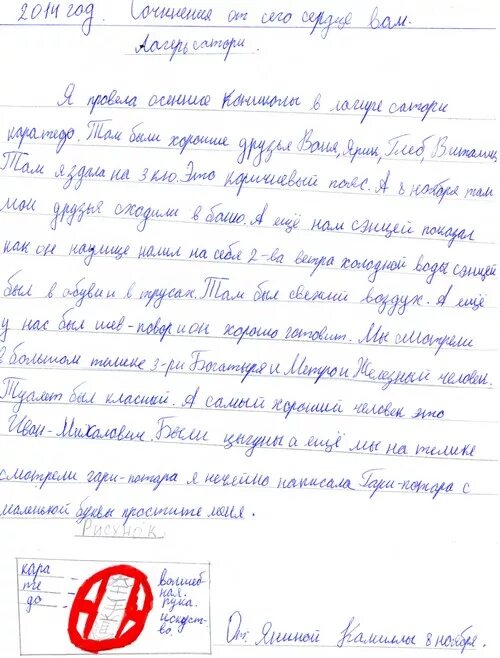 2014 год. Сочинения от сего сердце вам.
Лагерь сатори.
Я провела осенние Каникулы в лагере сатори
каратедо. Там были хорошие друзья Ваня, Ярик, Глеб, Виталик,
Там я здала на 3 кю. Это коричневый пояс. А 8 ноября там
мои друзья сходили в баню. А ещё нам сэнцей показал
как он на улице налил на себя 2-ва ветра холодной воды сэнцей
был в обуви и в трусах. Там был свежий воздух. А ещё
у нас был шев-повор и он хорошо готовит. Мы смотрели
в большом телике 3-ри Богатыря и Метро и Железный человек.
Туалет был класный. А самый хороший человек это
Иван-Михалович. Были цыгуны а ещё мы на телике
смотрели гари-потара я нечейно написала Гари-потара с
маленькой буквы простите меня.
Рисунок
кара
те
до
волшеб-
ная.
рука.
искуст-
во.
От: Яниной Камиллы 8 ноября.